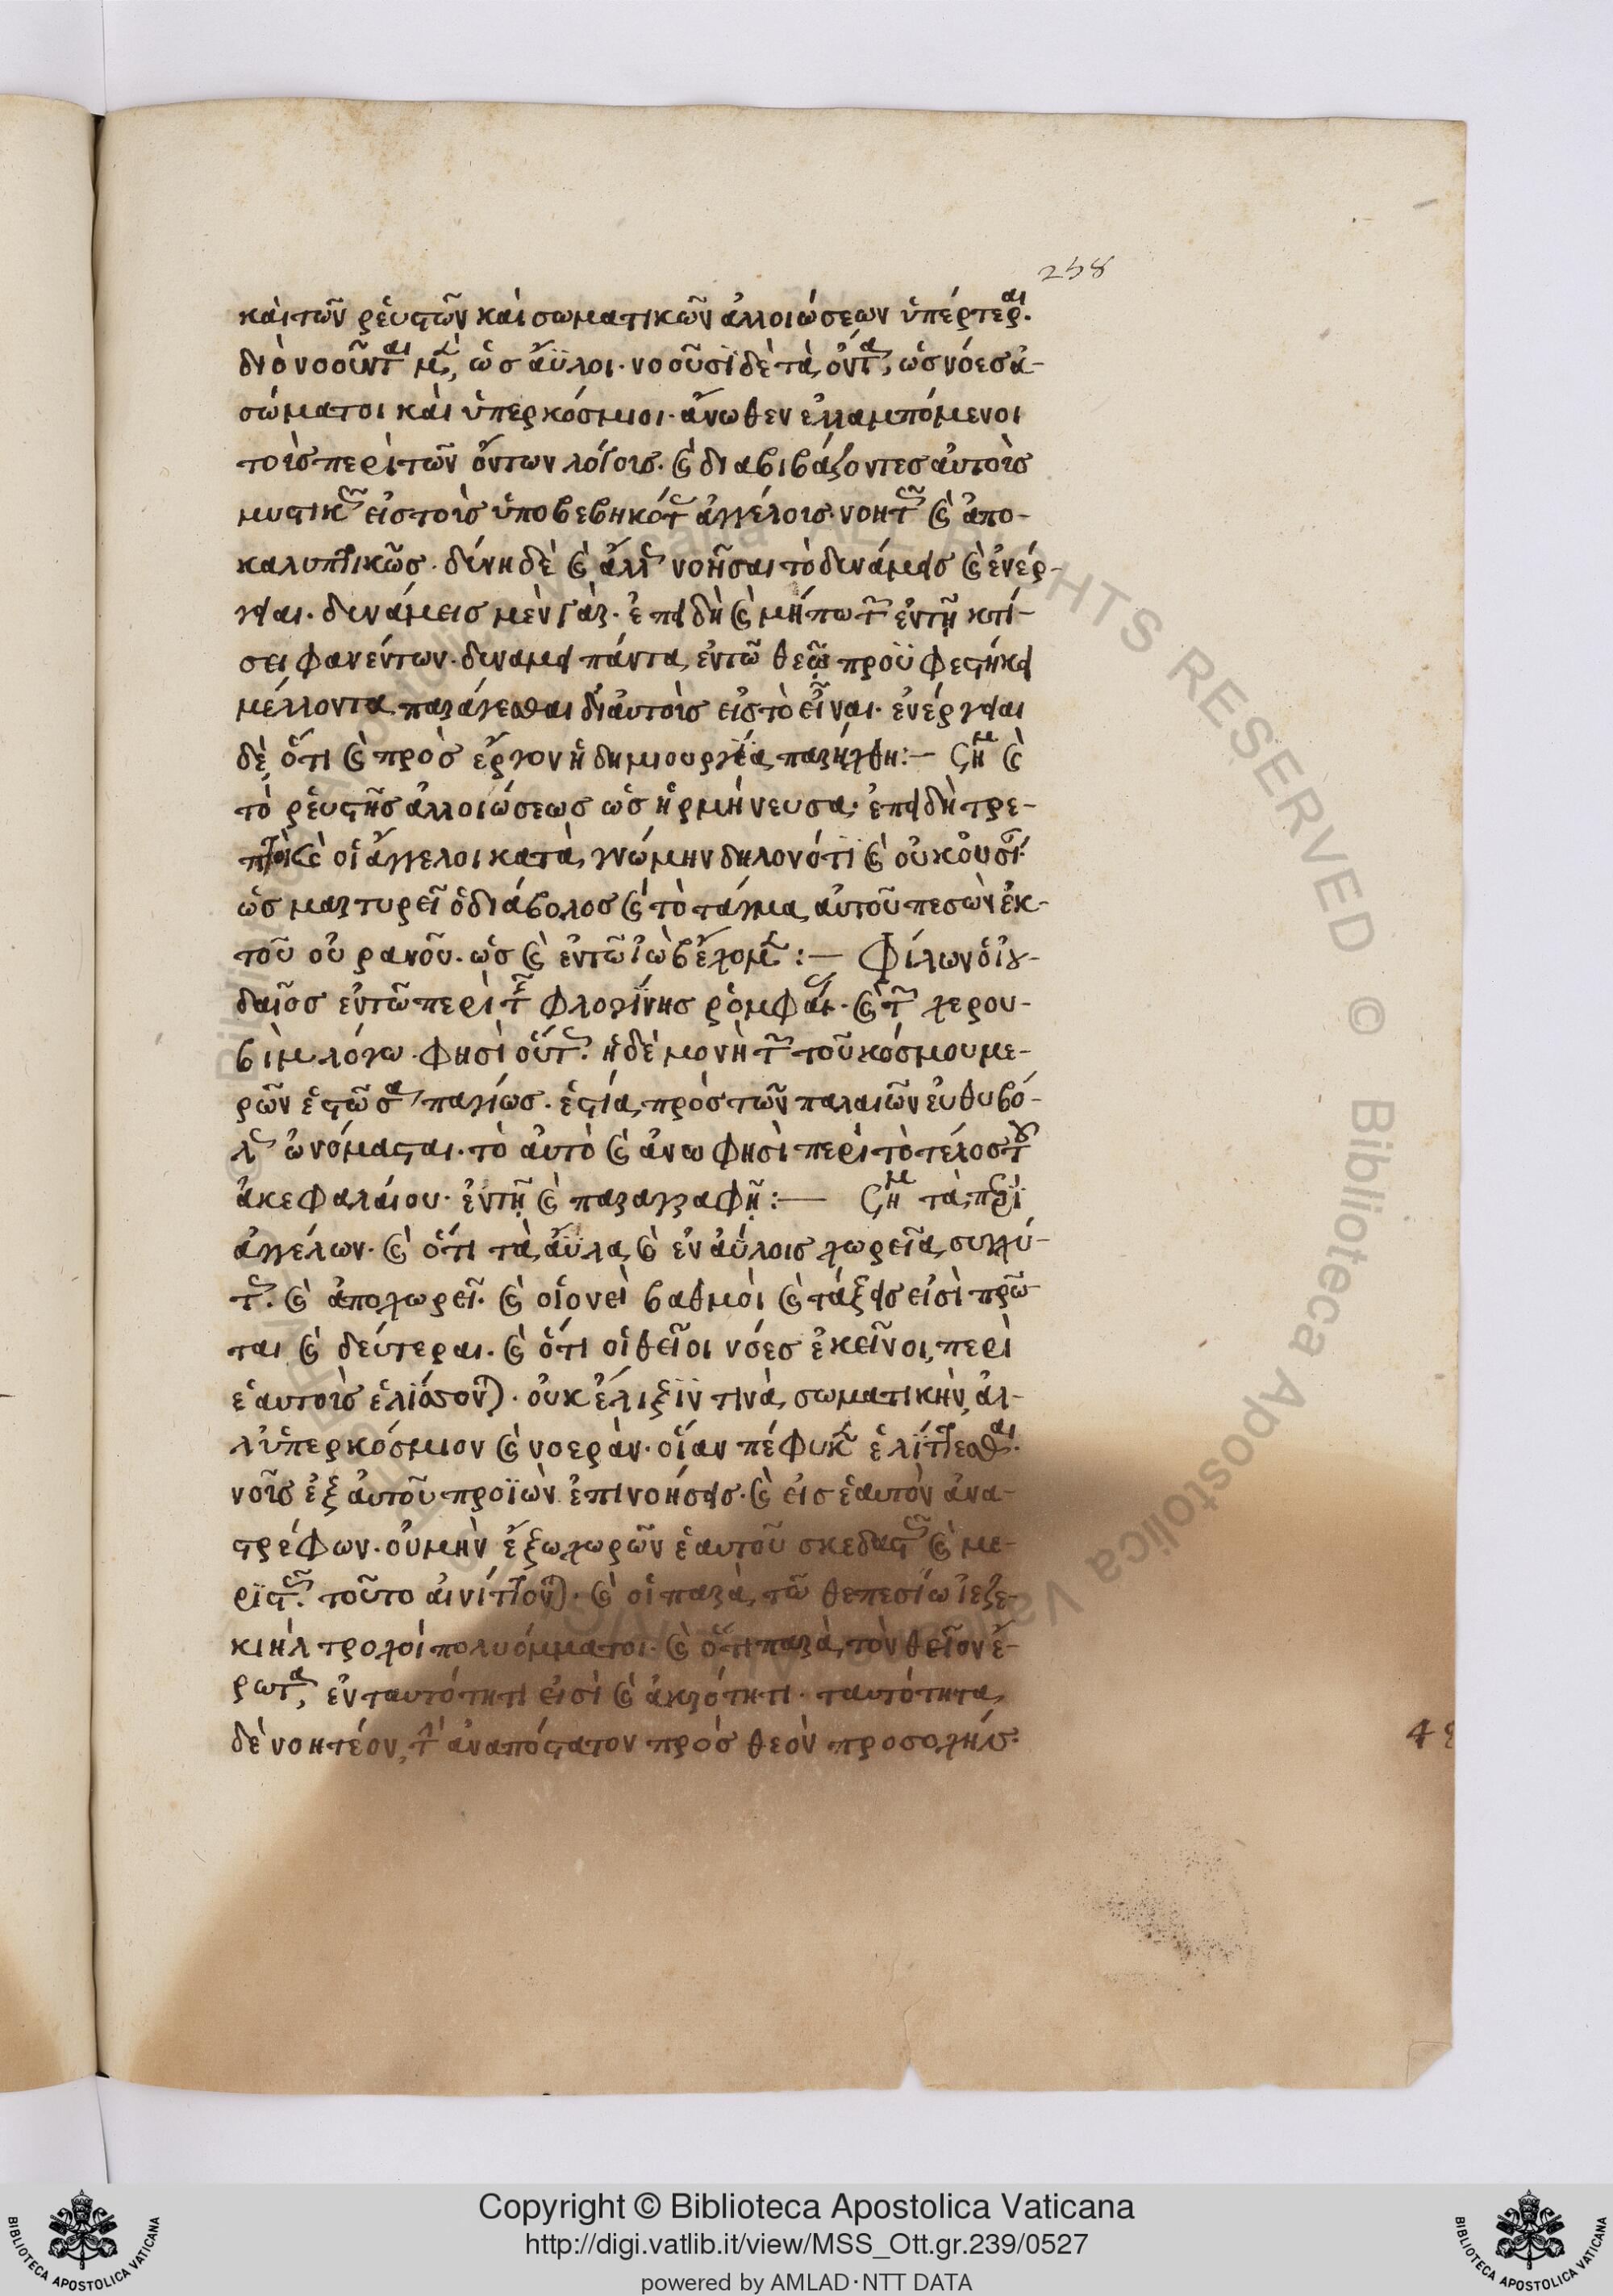 258
καὶ τῶν ῥευστῶν καὶ σωματικῶν ἀλλοιώσεων ὑπέρτεραι.
διὸ νοοῦνται μὲν, ὡς ἄϋλοι. νοοῦσι δὲ τὰ ὄντα, ὡς νόες ἀ-
σώματοι καὶ ὑπερκόσμιοι. ἄνωθεν ἐλλαμπόμενοι
τοῖς περὶ τῶν ὄντων λόγοις. καὶ διαβιβάζοντες αὐτοῖς
μυστικῶς εἰς τοῖς ὑποβεβηκότας ἀγγέλοις. νοητῶς καὶ ἀπο-
καλυπτικῶς. δύνη δὲ καὶ ἄλλως νοῆσαι τὸ δυνάμεις καὶ ἐνέρ-
γειαι. δυνάμεις μὲν γὰρ. ἐπειδὴ καὶ μήπω τῶν ἐν τῇ κτί-
σει φανέντων. δυνάμει πάντα, ἐν τῶ θεῶ προϋφεστήκει
μέλλοντα παράγεσθαι δι' αὐτοῖς εἰς τὸ εἶναι. ἐνέργειαι
δὲ ὅτι καὶ πρὸς ἔργον ἡ δημιουργία παρήχθη:— Σημ καὶ
τὸ ῥευστῆς ἀλλοιώσεως ὡς ἡρμήνευσα. ἐπειδὴ τρε-
πτοὶ καὶ οἱ ἄγγελοι κατὰ γνώμην δηλονότι καὶ οὐκ οὐσί
ὡς μαρτυρεῖ ὁ διάβολος καὶ τὸ τάγμα αὐτοῦ πεσὼν ἐκ-
τοῦ οὐρανοῦ. ὡς καὶ ἐν τῶ ἰὼβ ἔχομεν :— Φίλων ὁ ἰου-
δαῖος ἐν τῶ περὶ τῆς φλογίνης ῥομφαίας. καὶ τῶν χερου-
βὶμ λόγω. φησὶ οὕτως. ἡ δὲ μονὴ τῶν τοῦ κόσμου με-
ρῶν ἑστῶσα παγίως. ἑστία, πρὸς τῶν παλαιῶν εὐθυβό-
λως ὠνόμασται. τὸ αὐτὸ καὶ ἄνω φησὶ περὶ τὸ τέλος τοῦ
ἀκεφαλαίου. ἐν τῇ καὶ παραγραφῇ:— Σημ τὰ περὶ
ἀγγέλων. καὶ ὅτι τὰ ἄϋλα καὶ ἐν ἀΰλοις χωρεῖα, συγχύ-
τως. καὶ ἀποχωρεῖ. καὶ οἱονεὶ βαθμοὶ καὶ τάξεις εἰσὶ πρῶ-
ται καὶ δεύτεραι. καὶ ὅτι οἱ θεῖοι νόες ἐκεῖνοι, περὶ
ἑαυτοῖς ἑλίσσονται. οὐκ ἔλιξιν τινὰ σωματικὴν, ἀλ-
λ' ὑπερκόσμιον καὶ νοερὰν. οἵαν πέφυκεν ἑλίττεσθαι.
νοῖς ἐξ αὐτοῦ προϊὼν ἐπινοήσεις. καὶ εἰς ἑαυτὸν ἀνα-
στρέφων. οὐ μὴν ἔξω χωρῶν ἑαυτοῦ σκεδαστῶς καὶ με-
ριστῶς. τοῦτο αἰνίττονται. καὶ οἱ παρὰ τῶ θεπεσίω ἰεζε-
κιὴλ τροχοὶ πολυόμματοι. καὶ ὅτι παρὰ τὸν θεῖον ἔ-
ρωτα, ἐν ταυτότητι εἰσὶ καὶ ἀκρότητι. ταυτότητα
δὲ νοητέον, τὸ ἀναπόστατον πρὸς θεὸν προσοχῆς.
48
Copyright © Biblioteca Apostolica Vaticana
http://digi.vatlib.it/view/MSS_Ott.gr.239/0527
powered by AMLAD·NTT DATA
BIBLIOTECA APOSTOLICA VATICANA
BIBLIOTECA APOSTOLICA VATICANA